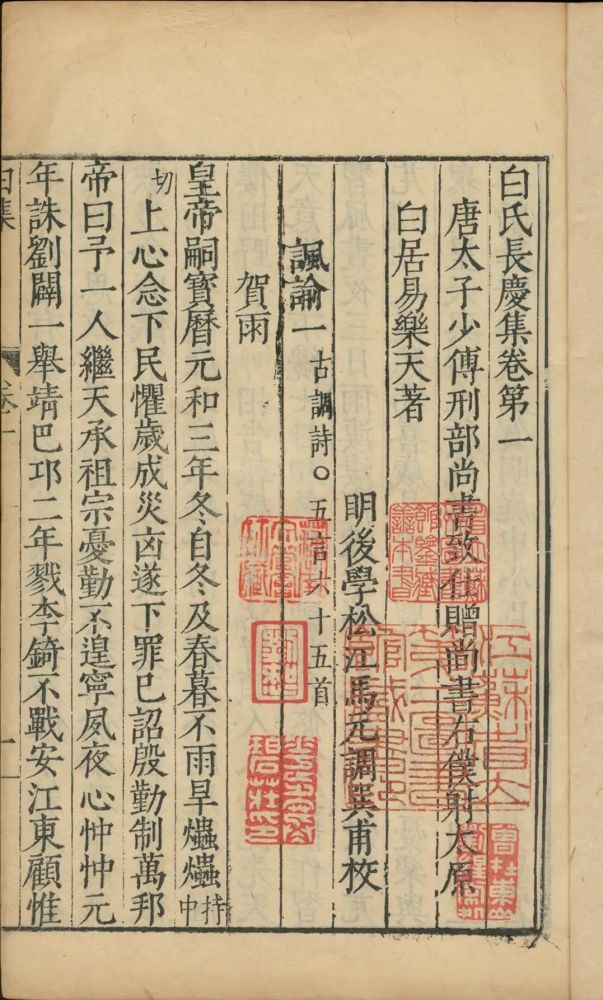 白氏長慶集卷第一
唐太子少傅刑部尚書致仕贈尚書右僕射太原
白居易樂天著
明後學松江馬元調巽甫校
諷諭一 古調詩○五言六十五首
賀雨
皇帝嗣寳曆元和三年冬自冬及春暮不雨旱爞爞 持中
切 上心念下民懼歲成災凶遂下罪巳詔殷勤制萬邦
帝曰予一人繼天承祖宗憂勤不遑寧夙夜心忡忡元
年誅劉闢一舉靖巴邛二年戮李錡不戰安江東顧惟
白集 卷一 一